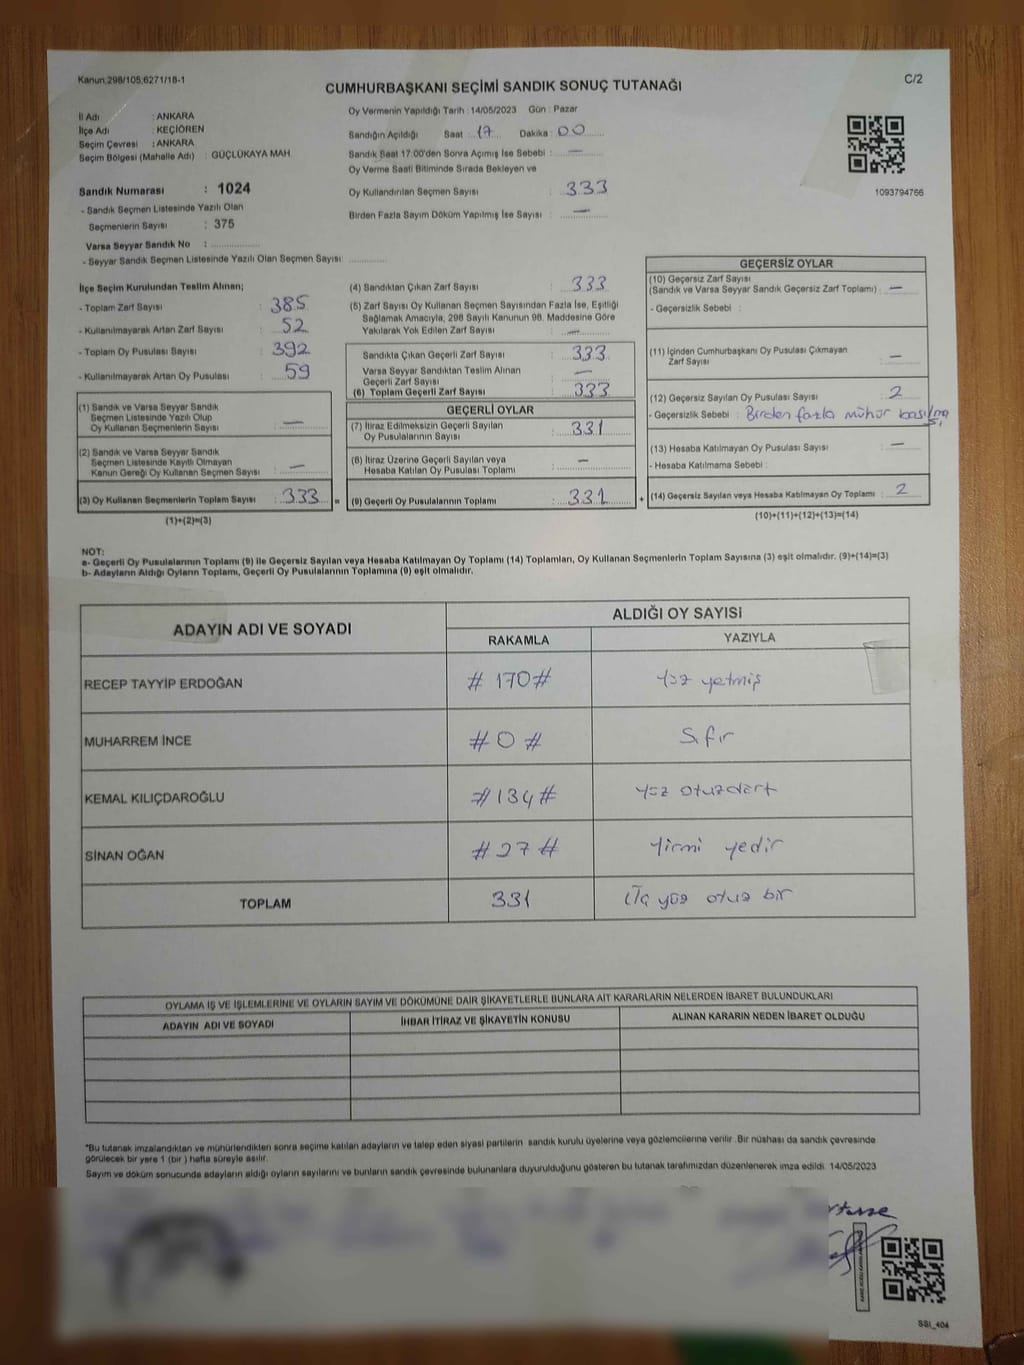 Kanun:298/105;6271/18-1
C/2
CUMHURBAŞKANI SEÇİMİ SANDIK SONUÇ TUTANAĞI
İl Adı : ANKARA
İlçe Adı : KEÇİÖREN
Seçim Çevresi : ANKARA
Seçim Bölgesi (Mahalle Adı) : GÜÇLÜKAYA MAH.
Sandık Numarası : 1024
- Sandık Seçmen Listesinde Yazılı Olan
Seçmenlerin Sayısı : 375
Varsa Seyyar Sandık No :
- Seyyar Sandık Seçmen Listesinde Yazılı Olan Seçmen Sayısı:
Oy Vermenin Yapıldığı Tarih : 14/05/2023 Gün : Pazar
Sandığın Açıldığı Saat : 17 Dakika : 00
Sandık Saat 17.00'den Sonra Açımış İse Sebebi : —
Oy Verme Saati Bitiminde Sırada Bekleyen ve
Oy Kullandırılan Seçmen Sayısı : 333
Birden Fazla Sayım Döküm Yapılmış İse Sayısı : —
1093794766
İlçe Seçim Kurulundan Teslim Alınan;
- Toplam Zarf Sayısı : 385
- Kullanılmayarak Artan Zarf Sayısı : 52
- Toplam Oy Pusulası Sayısı : 392
- Kullanılmayarak Artan Oy Pusulası : 59
(1) Sandık ve Varsa Seyyar Sandık
Seçmen Listesinde Yazılı Olup
Oy Kullanan Seçmenlerin Sayısı : —
(2) Sandık ve Varsa Seyyar Sandık
Seçmen Listesinde Kayıtlı Olmayan
Kanun Gereği Oy Kullanan Seçmen Sayısı : —
(3) Oy Kullanan Seçmenlerin Toplam Sayısı : 333 =
(1)+(2)=(3)
(4) Sandıktan Çıkan Zarf Sayısı : 333
(5) Zarf Sayısı Oy Kullanan Seçmen Sayısından Fazla İse, Eşitliği
Sağlamak Amacıyla, 298 Sayılı Kanunun 98. Maddesine Göre
Yakılarak Yok Edilen Zarf Sayısı : —
Sandıkta Çıkan Geçerli Zarf Sayısı : 333
Varsa Seyyar Sandıktan Teslim Alınan
Geçerli Zarf Sayısı : —
(6) Toplam Geçerli Zarf Sayısı : 333
GEÇERLİ OYLAR
(7) İtiraz Edilmeksizin Geçerli Sayılan
Oy Pusulalarının Sayısı : 331
(8) İtiraz Üzerine Geçerli Sayılan veya
Hesaba Katılan Oy Pusulası Toplamı : —
(9) Geçerli Oy Pusulalarının Toplamı : 331 +
GEÇERSİZ OYLAR
(10) Geçersiz Zarf Sayısı
(Sandık ve Varsa Seyyar Sandık Geçersiz Zarf Toplamı) : —
- Geçersizlik Sebebi :
(11) İçinden Cumhurbaşkanı Oy Pusulası Çıkmayan
Zarf Sayısı : —
(12) Geçersiz Sayılan Oy Pusulası Sayısı : 2
- Geçersizlik Sebebi : Birden fazla mühür basılması
(13) Hesaba Katılmayan Oy Pusulası Sayısı : —
- Hesaba Katılmama Sebebi :
(14) Geçersiz Sayılan veya Hesaba Katılmayan Oy Toplamı : 2
(10)+(11)+(12)+(13)=(14)
NOT:
a- Geçerli Oy Pusulalarının Toplamı (9) ile Geçersiz Sayılan veya Hesaba Katılmayan Oy Toplamı (14) Toplamları, Oy Kullanan Seçmenlerin Toplam Sayısına (3) eşit olmalıdır. (9)+(14)=(3)
b- Adayların Aldığı Oyların Toplamı, Geçerli Oy Pusulalarının Toplamına (9) eşit olmalıdır.
ADAYIN ADI VE SOYADI
ALDIĞI OY SAYISI
RAKAMLA YAZIYLA
RECEP TAYYİP ERDOĞAN # 170 # Yüz yetmiş
MUHARREM İNCE # 0 # Sıfır
KEMAL KILIÇDAROĞLU # 134 # Yüz otuzdört
SİNAN OĞAN # 27 # Yirmi yedir
TOPLAM 331 Üç yüz otuz bir
OYLAMA İŞ VE İŞLEMLERİNE VE OYLARIN SAYIM VE DÖKÜMÜNE DAİR ŞİKAYETLERLE BUNLARA AİT KARARLARIN NELERDEN İBARET BULUNDUKLARI
ADAYIN ADI VE SOYADI İHBAR İTİRAZ VE ŞİKAYETİN KONUSU ALINAN KARARIN NEDEN İBARET OLDUĞU
"Bu tutanak imzalandıktan ve mühürlendikten sonra seçime katılan adayların ve talep eden siyasi partilerin sandık kurulu üyelerine veya gözlemcilerine verilir. Bir nüshası da sandık çevresinde
görülecek bir yere 1 (bir ) hafta süreyle asılır.
Sayım ve döküm sonucunda adayların aldığı oyların sayılarını ve bunların sandık çevresinde bulunanlara duyurulduğunu gösteren bu tutanak tarafımızdan düzenlenerek imza edildi. 14/05/2023
SSI_404